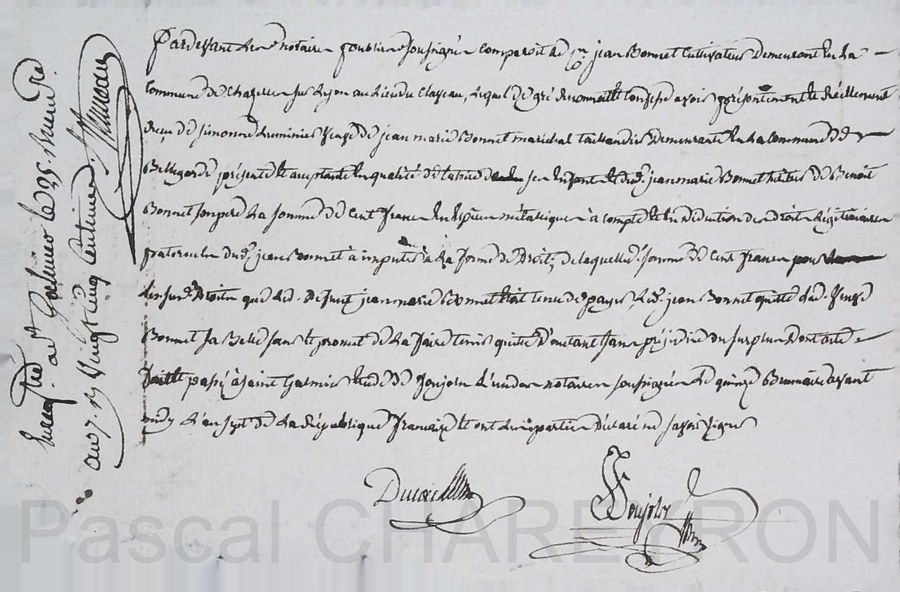 Pardevant les notaires publics soussignés comparoit le cn jean Bonnet Cultivateur demeurant en la
Commune de Chazelle sur Lyon au lieu du Clapeau, lequel de gré reconnoit et confesse avoir présentement et réellement
Reçu de Simonne veuve de jean marie Bonnet maréchal taillandier demeurante en la commune de
Bellegarde présente et acceptante en qualité de tutrice de ses enfant et dud. jean marie Bonnet héritier de Benoit
Bonnet son père la somme de Cent francs en espèces métalique à compte et en déduction des droits légitimaires
paternels dud. jean Bonnet à imputer à la forme de Droit, de laquelle somme de Cent francs
et sur. Droits que led. défunt jean marie Bonnet étoit tenu de payer aud. jean Bonnet quitte lad. veuve
Bonnet sa Belle sœur et promet de la faire tenir quitte d'autant sans préjudice du surplus dont acte
fait et passé à Saint Galmier étude de Jonjoly l'un des notaires soussignés le quinze Brumaire avant
midy l'an sept de la République française et ont les parties déclaré ne savoir signer
Jonjoly
Enregtré à St Galmier le 25 brumre
an 7. R. vingt cinq centimes.
Pascal CHAREYRON